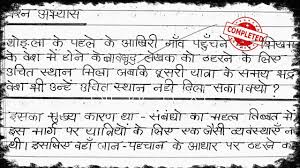 प्रश्न अभ्यास
COMPLETED
थोङ्ला के पहले के आखिरी गाँव पहुँचने
के वेश में होने के बावजूद लेखक को ठहरने के लिए
उचित स्थान मिला जबकि दूसरी यात्रा के समय भद्र
वेश भी उन्हें उचित स्थान नहीं दिला सका। क्यों?
इसका मुख्य कारण था - संबंधों का महत्व तिब्बत में
इस मार्ग पर यात्रियों के लिए एक जैसी व्यवस्थाएँ न
थी। इसलिए वहाँ जान-पहचान के आधार पर ठहरने का